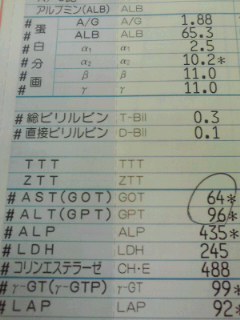 アルブミン(ALB) ALB
# 蛋白分画 A/G A/G 1.88
ALB ALB 65.3
α₁ α₁ 2.5
α₂ α₂ 10.2*
β β 11.0
γ γ 11.0
# 総ビリルビン T-Bil 0.3
# 直接ビリルビン D-Bil 0.1
TTT TTT
ZTT ZTT
# AST(GOT) GOT 64*
# ALT(GPT) GPT 96*
# ALP ALP 435*
# LDH LDH 245
# コリンエステラーゼ CH·E 488
# γ-GT(γ-GTP) γ-GT 99*
# LAP LAP 92*